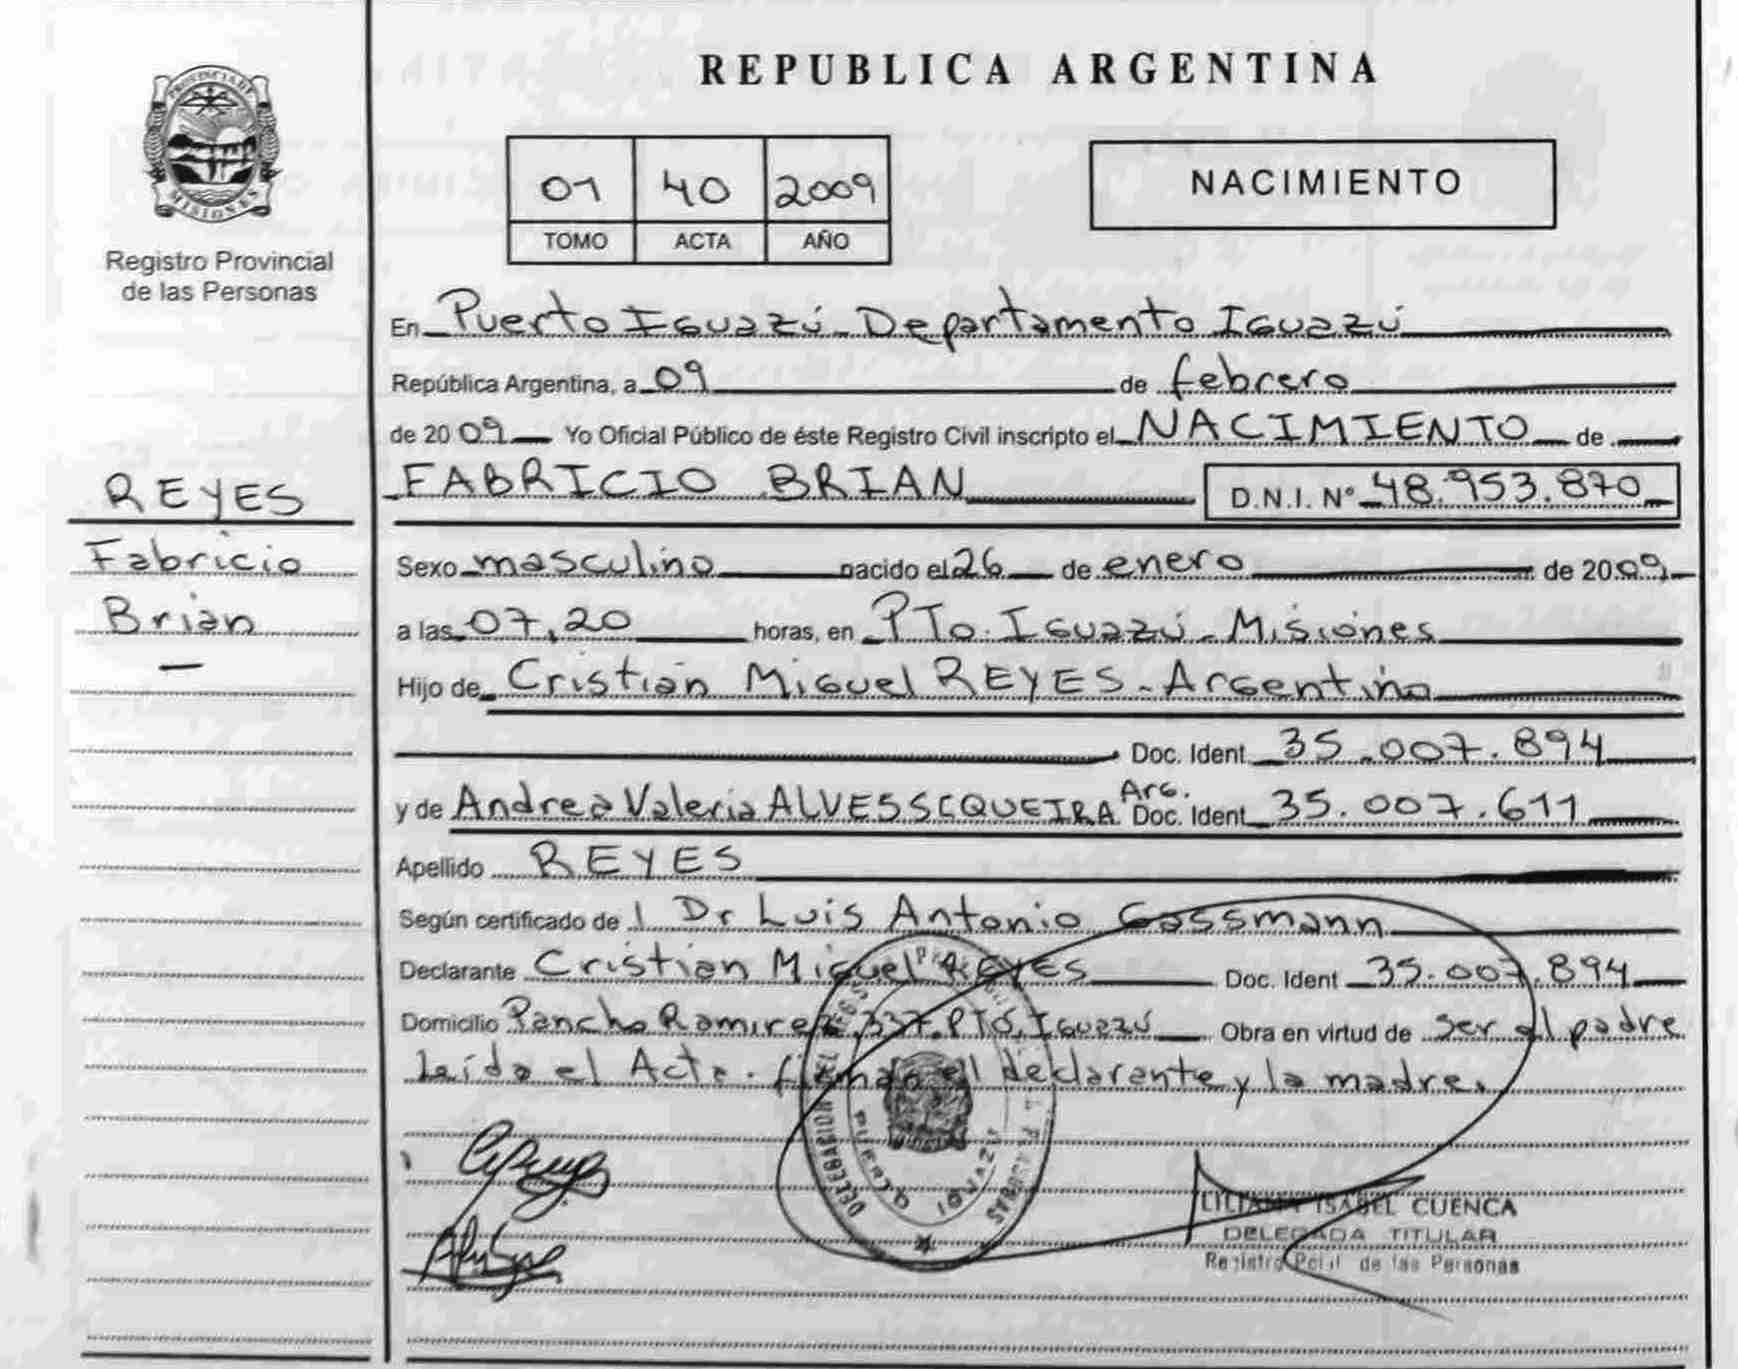 REPUBLICA ARGENTINA
PROVINCIA DE
MISIONES
Registro Provincial
de las Personas
01 40 2009
TOMO ACTA AÑO
NACIMIENTO
En Puerto Iguazú - Departamento Iguazú
República Argentina, a 09 de febrero
de 2009 Yo Oficial Público de éste Registro Civil inscripto el NACIMIENTO de
FABRICIO BRIAN D.N.I. Nº 48.953.870
REYES
Fabricio
Brian
Sexo masculino nacido el 26 de enero de 2009
a las 07,20 horas, en PTo. Iguazú - Misiones
Hijo de Cristian Miguel REYES - Argentino
Doc. Ident 35.007.894
y de Andrea Valeria ALVES SEQUEIRA Arg. Doc. Ident 35.007.611
Apellido REYES
Según certificado de Dr Luis Antonio Gassmann
Declarante Cristian Miguel REYES Doc. Ident 35.007.894
Domicilio Pancho Ramirez 337. PTo. Iguazú Obra en virtud de ser el padre
Leída el Acta. firman el declarante y la madre.
PUERTO IGUAZU
LILIANA ISABEL CUENCA
DELEGADA TITULAR
Registro Pcial de las Personas